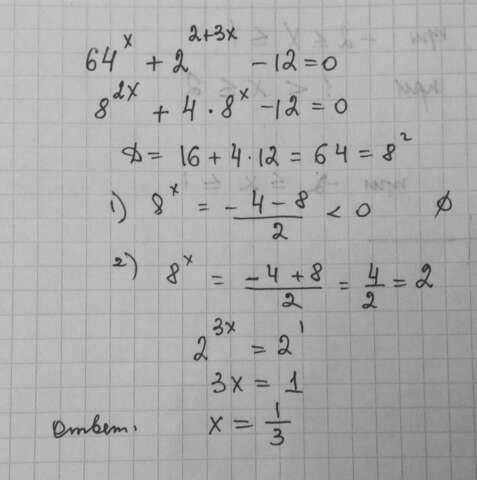 64^x + 2^(2+3x) - 12 = 0
8^(2x) + 4 · 8^x - 12 = 0
D = 16 + 4 · 12 = 64 = 8^2
1) 8^x = (-4 - 8)/2 < 0 ∅
2) 8^x = (-4 + 8)/2 = 4/2 = 2
2^(3x) = 2^1
3x = 1
Ответ. x = 1/3